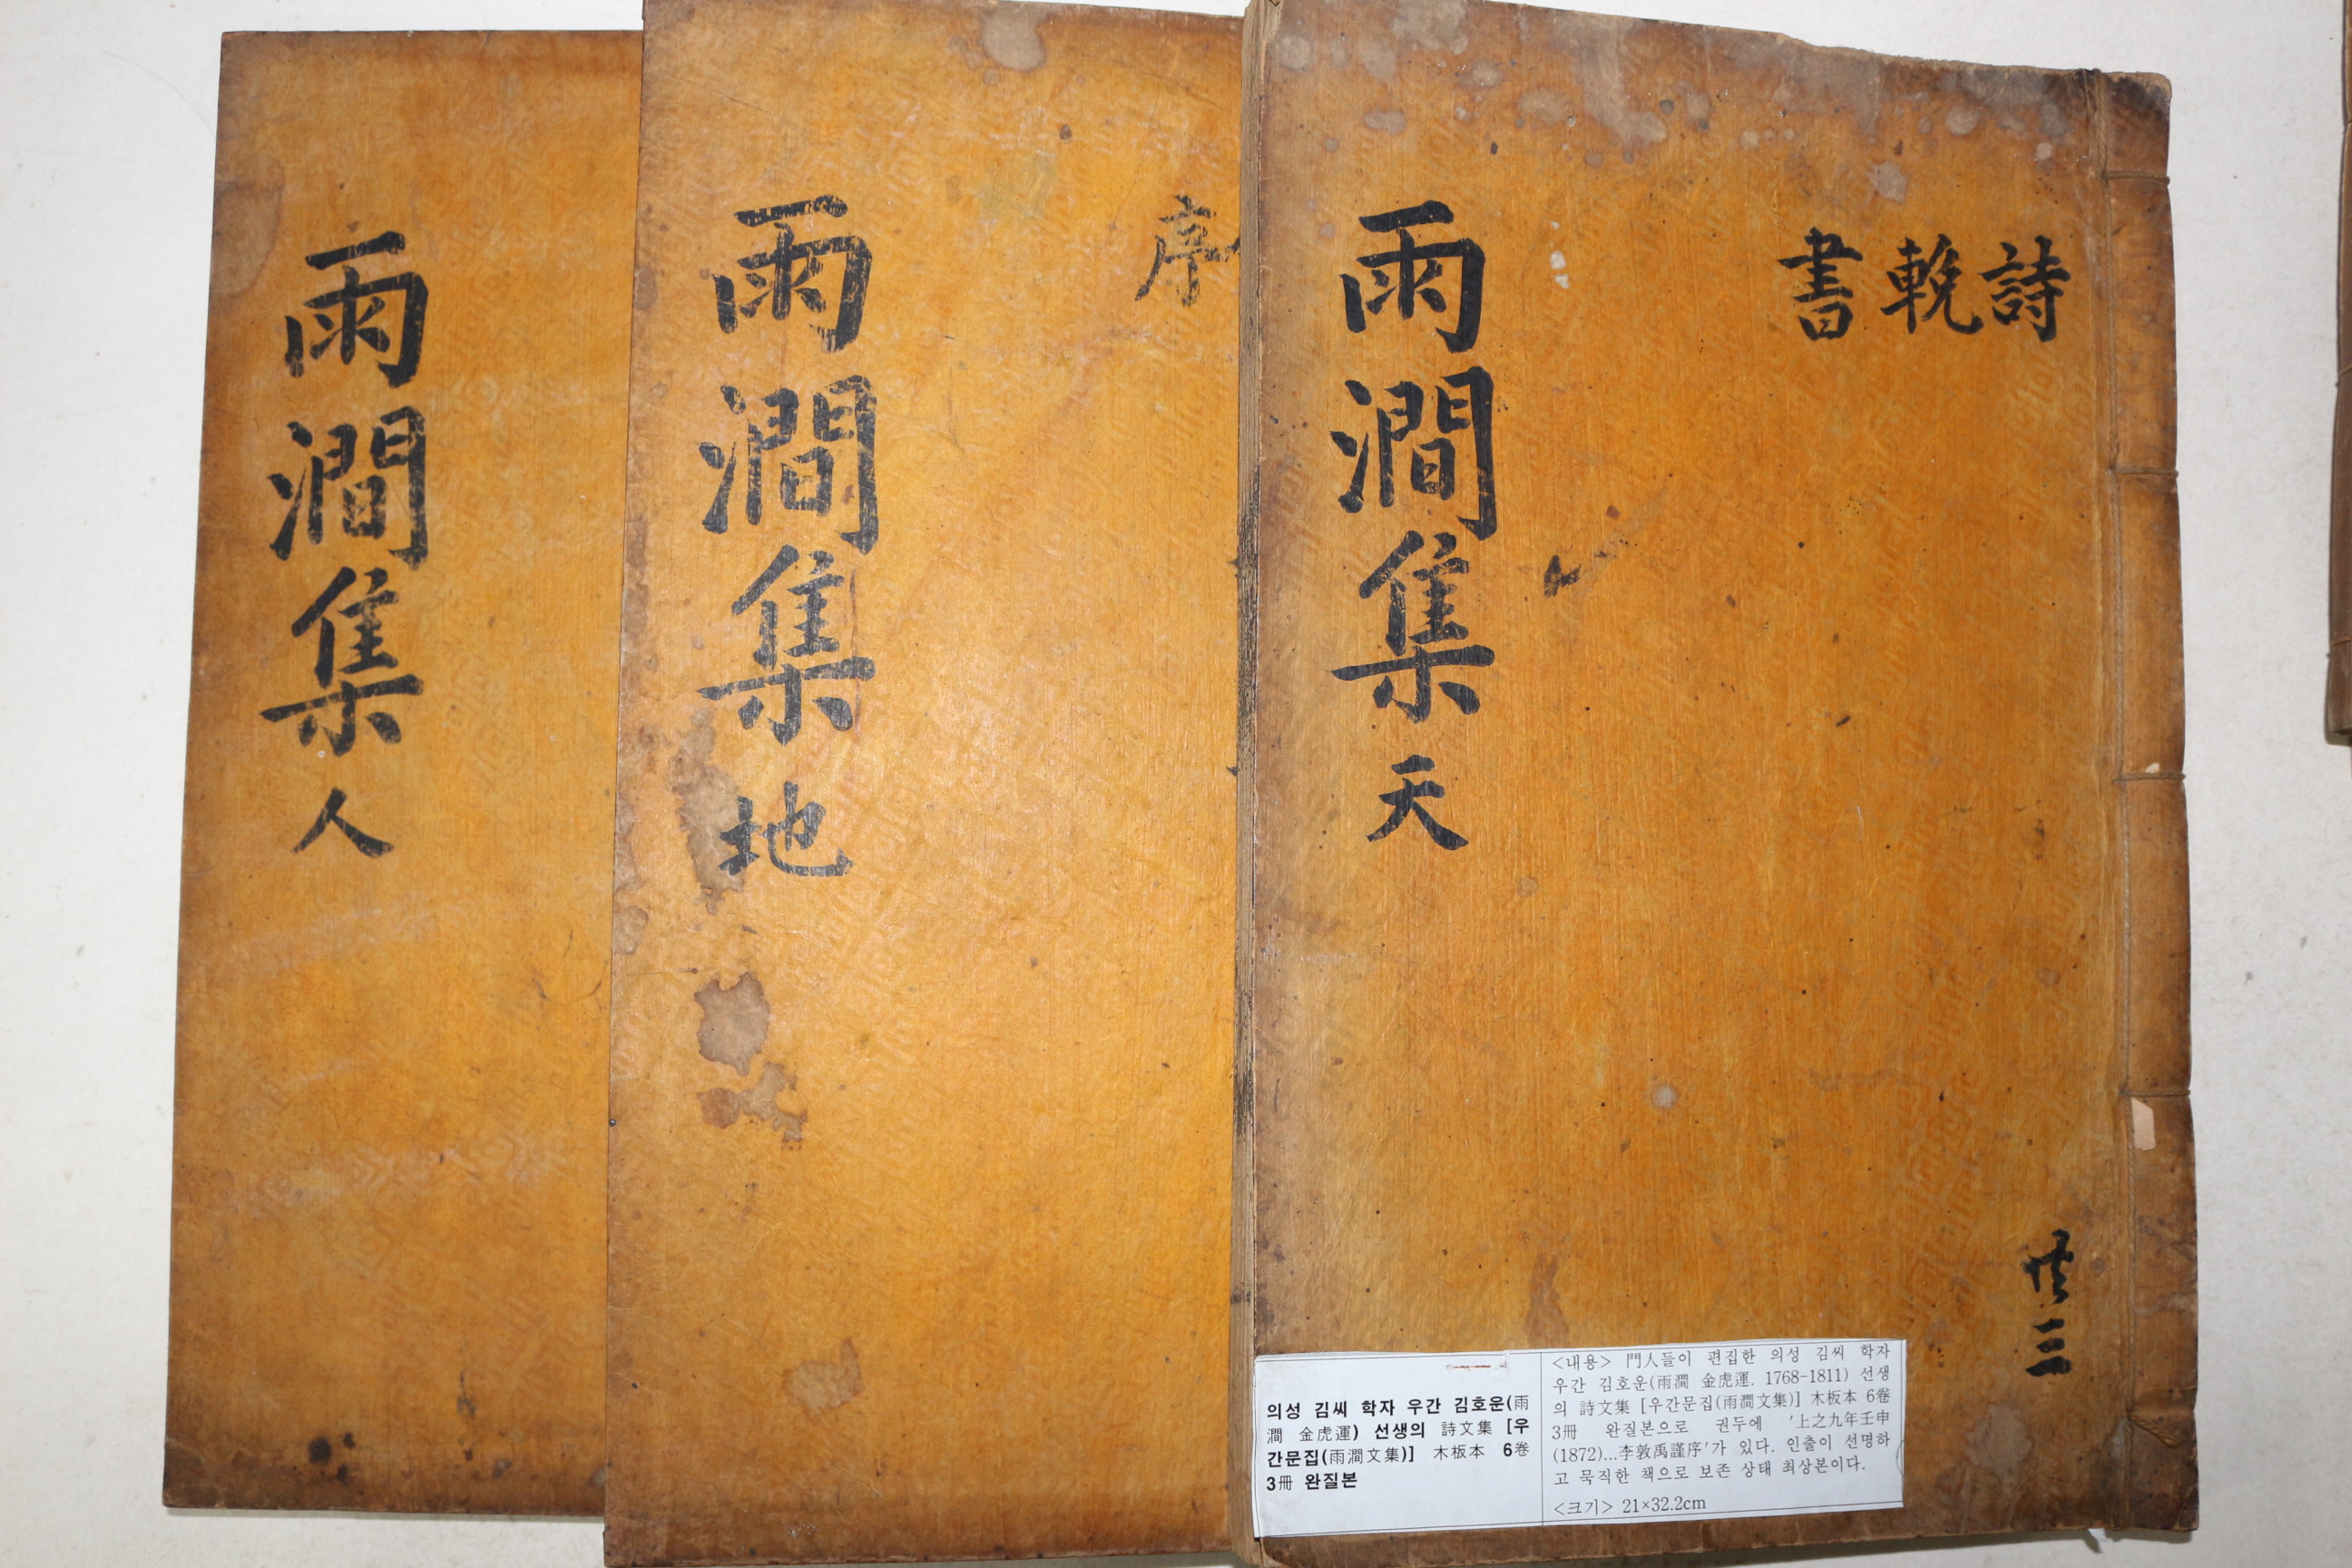 詩
輓
書
雨澗集 天
共三
序
雨澗集 地
雨澗集 人
의성 김씨 학자 우간 김호운(雨
澗 金虎運) 선생의 詩文集 [우
간문집(雨澗文集)] 木板本 6卷
3冊 완질본
<내용> 門人들이 편집한 의성 김씨 학자
우간 김호운(雨澗 金虎運. 1768-1811) 선생
의 詩文集 [우간문집(雨澗文集)] 木板本 6卷
3冊 완질본으로 권두에 '上之九年壬申
(1872)...李敦禹謹序'가 있다. 인출이 선명하
고 묵직한 책으로 보존 상태 최상본이다.
<크기> 21×32.2cm